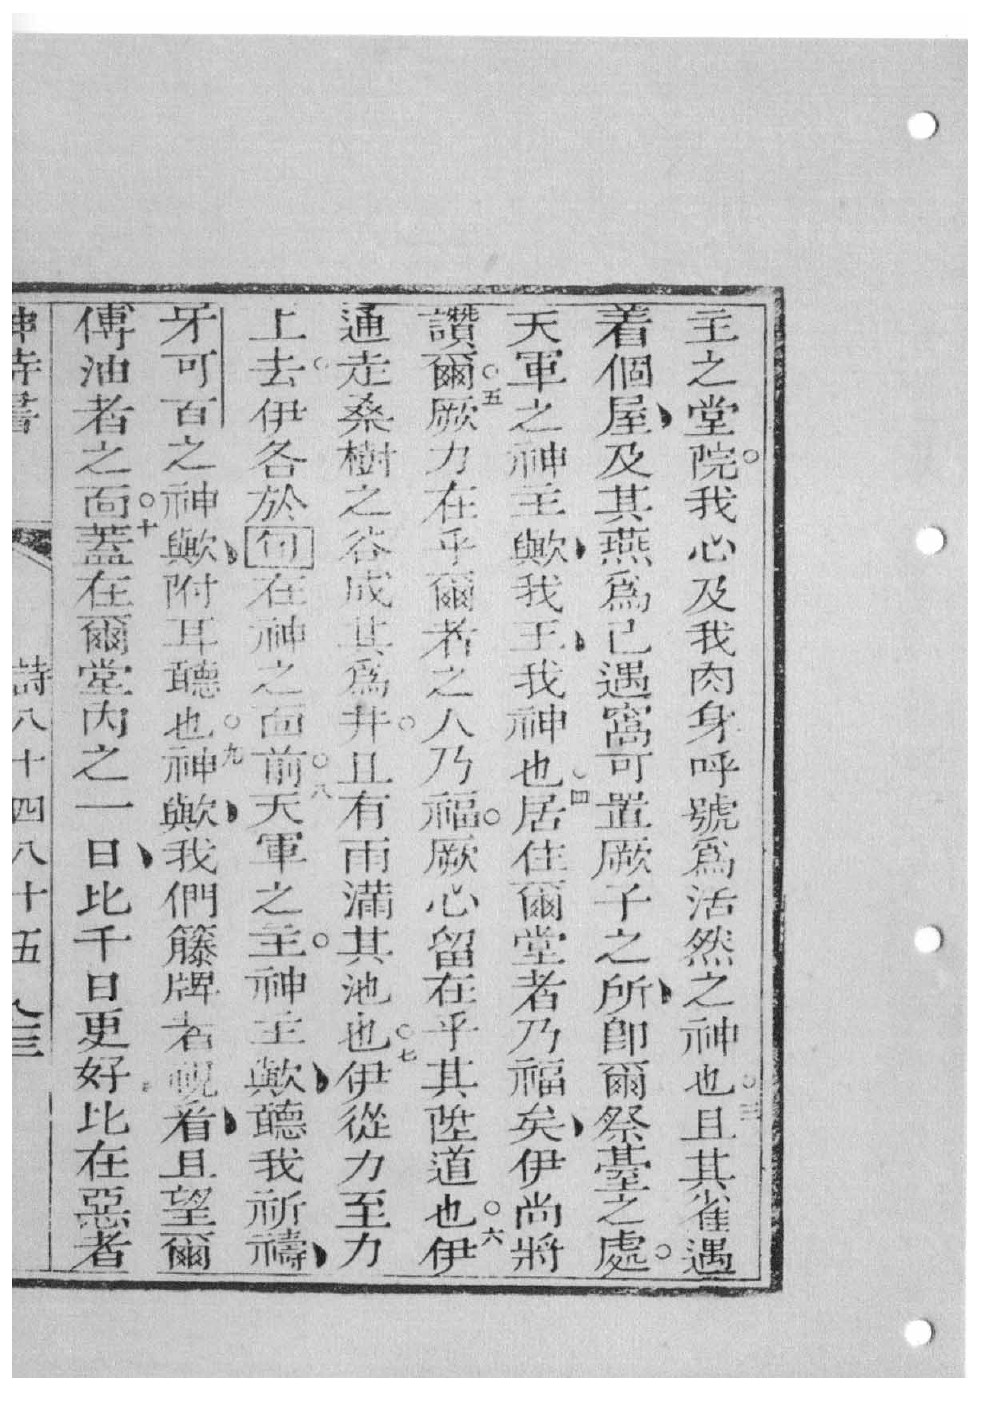 主之堂院我心及我肉身呼號為活然之神也三且其雀遇
着個屋及其燕為己遇窩可置厥子之所即爾祭臺之處
天軍之神主歟我王我神也四居住爾堂者乃福矣伊尚將
讚爾五厥力在乎爾者之人乃福厥心留在乎其陞道也六伊
通走桑樹之谷成其為井且有雨滿其池也七伊從力至力
上去伊各於旬在神之面前八天軍之主神主歟聽我祈禱
牙可百之神歟附耳聽也九神歟我們籐牌者睨看且望爾
傅油者之面十蓋在爾堂內之一日比千日更好比在惡者
神詩書 詩八十四八十五 八三